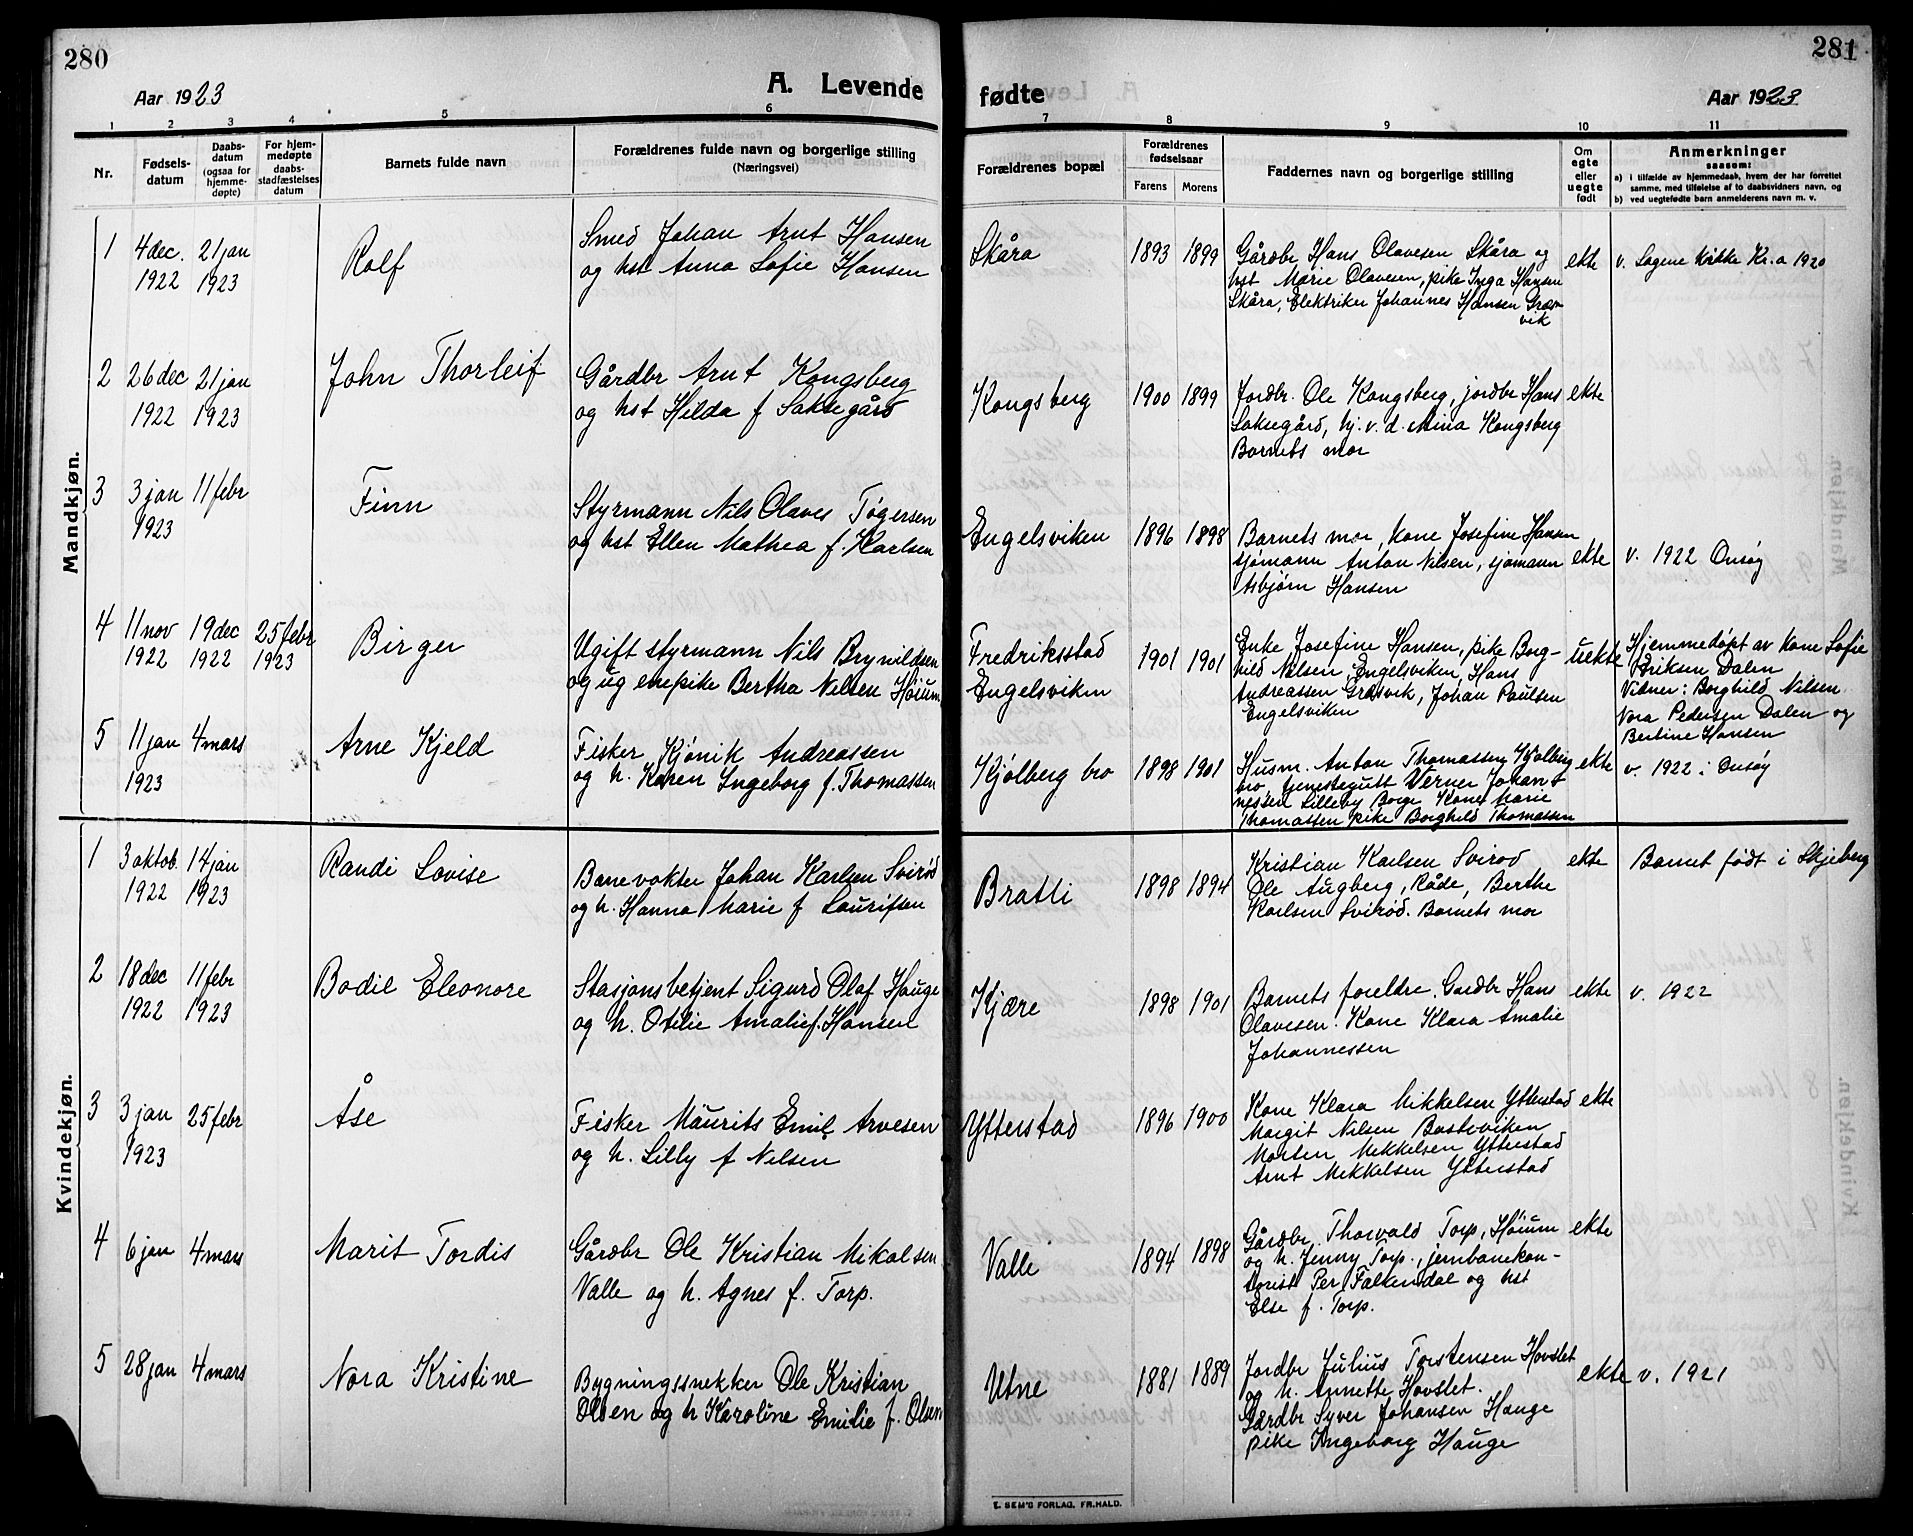 280
Aar 1923
A. Levende
1 2 3 4 5 6
Nr.
Fødsels-
datum
Daabs-
datum
(ogsaa for
hjemme-
døpte)
For hjem-
medøpte
daabs-
stadfæstelses
datum
Barnets fulde navn
Forældrenes fulde navn og borgerlige stilling
(Næringsvei)
Mandkjøn.
1 4 dec. 21 jan
1922 1923
Rolf
Smed Johan Arnt Hansen
og hst Anna Sofie Hansen
2 26 dec 21 jan
1922 1923
John Thorleif
Gårdbr Arnt Kongsberg
og hst Hilda f Saktegård
3 3 jan 11 febr
1923
Finn
Styrmann Nils Olaves Tøgersen
og hst Ellen Mathea f. Karlsen
4 11 nov 19 dec 25 febr
1922 1922 1923
Birger
Ugift styrmann Nils Brynildsen
og ug enepike Bertha Nilsen Høium
5 11 jan 4 mars
1923
Arne Kjeld
Fisker Kjønik Andreassen
og h. Karen Ingeborg f. Thomassen
Kvindekjøn.
1 3 oktob. 14 jan
1922 1923
Randi Lovise
Banevokter Johan Karlsen Svirød
og h. Hanna Marie f Lauritsen
2 18 dec 11 febr
1922 1923
Bodil Eleonore
Stasjonsbetjent Sigurd Olaf Hauge
og h. Otilie Amalie f. Hansen
3 3 jan 25 febr
1923
Åse
Fisker Maurits Emil Arvesen
og h. Lilly f Nilsen
4 6 jan 4 mars
Marit Tordis
Gårdbr Ole Kristian Mikalsen
Valle og h. Agnes f. Torp.
5 28 jan 4 mars
Nora Kristine
Bygningssnekker Ole Kristian
Olsen og h Karoline Emilie f. Olsen
281
fødte
Aar 1923
7 8 9 10 11
Forældrenes bopæl
Forældrenes
fødselsaar
Farens Morens
Faddernes navn og borgerlige stilling
Om
egte
eller
uegte
født
Anmerkninger
saasom:
a) i tilfælde av hjemmedaab, hvem der har forrettet
samme, med tilføielse af to daabsvidners navn, og
b) ved uegtefødte barn anmelderens navn m. v.
Skåra 1893 1899
Gårdbr Hans Olavesen Skåra og
hst Marie Olavesen, pike Inga Hansen
Skåra, Elektriker Johannes Hansen Græs-
vik
ekte
v. Sagene kirke Kr.a 1920
Kongsberg 1900 1899
Jordbr. Ole Kongsberg, jordbr Hans
Saktegård, hj. v. d. Mina Kongsberg
Barnets mor
ekte
Engelsviken 1896 1898
Barnets mor, kone Josefine Hansen
sjømann Anton Nilsen, sjømann
Asbjørn Hansen
ekte
v. 1922 Onsøy
Fredriksstad
Engelsviken
1901 1901
Enke Josefine Hansen, pike Borg-
hild Nilsen, Engelsviken, Hans
Andreassen Græsvik, Johan Paulsen
Engelsviken
uekte
Hjemmedøpt av kone Sofie
Eriksen Dalen
Vidner: Borghild Nilsen
Nora Pedersen Dalen og
Bertine Hansen
Kjølberg bro 1898 1901
Husm. Anton Thomassen Kjølberg
bro, tjenestegutt Verner Johan-
nessen Lilleby Borge Kone Marie
Thomassen pike Borghild Thomassen
ekte
v. 1922 i Onsøy
Bratli 1898 1894
Kristian Karlsen Svirød
Ole Augberg, Råde, Berthe
Karlsen Svirød. Barnets mor
ekte
Barnet født i Skjeberg
Kjære 1898 1901
Barnets foreldre. Gardbr Hans
Olavesen. Kone Klara Amalie
Johannessen
ekte
v. 1922
Ytterstad 1896 1900
Kone Klara Mikkelsen Ytterstad
Margit Nilsen Basteviken
Morten Mikkelsen Ytterstad
Arnt Mikkelsen Ytterstad
ekte
Valle 1894 1898
Gårdbr. Thorvald Torp, Høium
og h. Jenny Torp., jernbanekon-
torist Per Falkendal og hst
Else f. Torp.
ekte
Utne 1881 1889
Jordbr Julius Torstensen Hovslet
og h. Annette Hovslet.
Gårdbr Syver Johansen Hauge
pike Ingeborg Hauge
ekte
v. 1921
E. SEM'S FORLAG, FR.HALD.